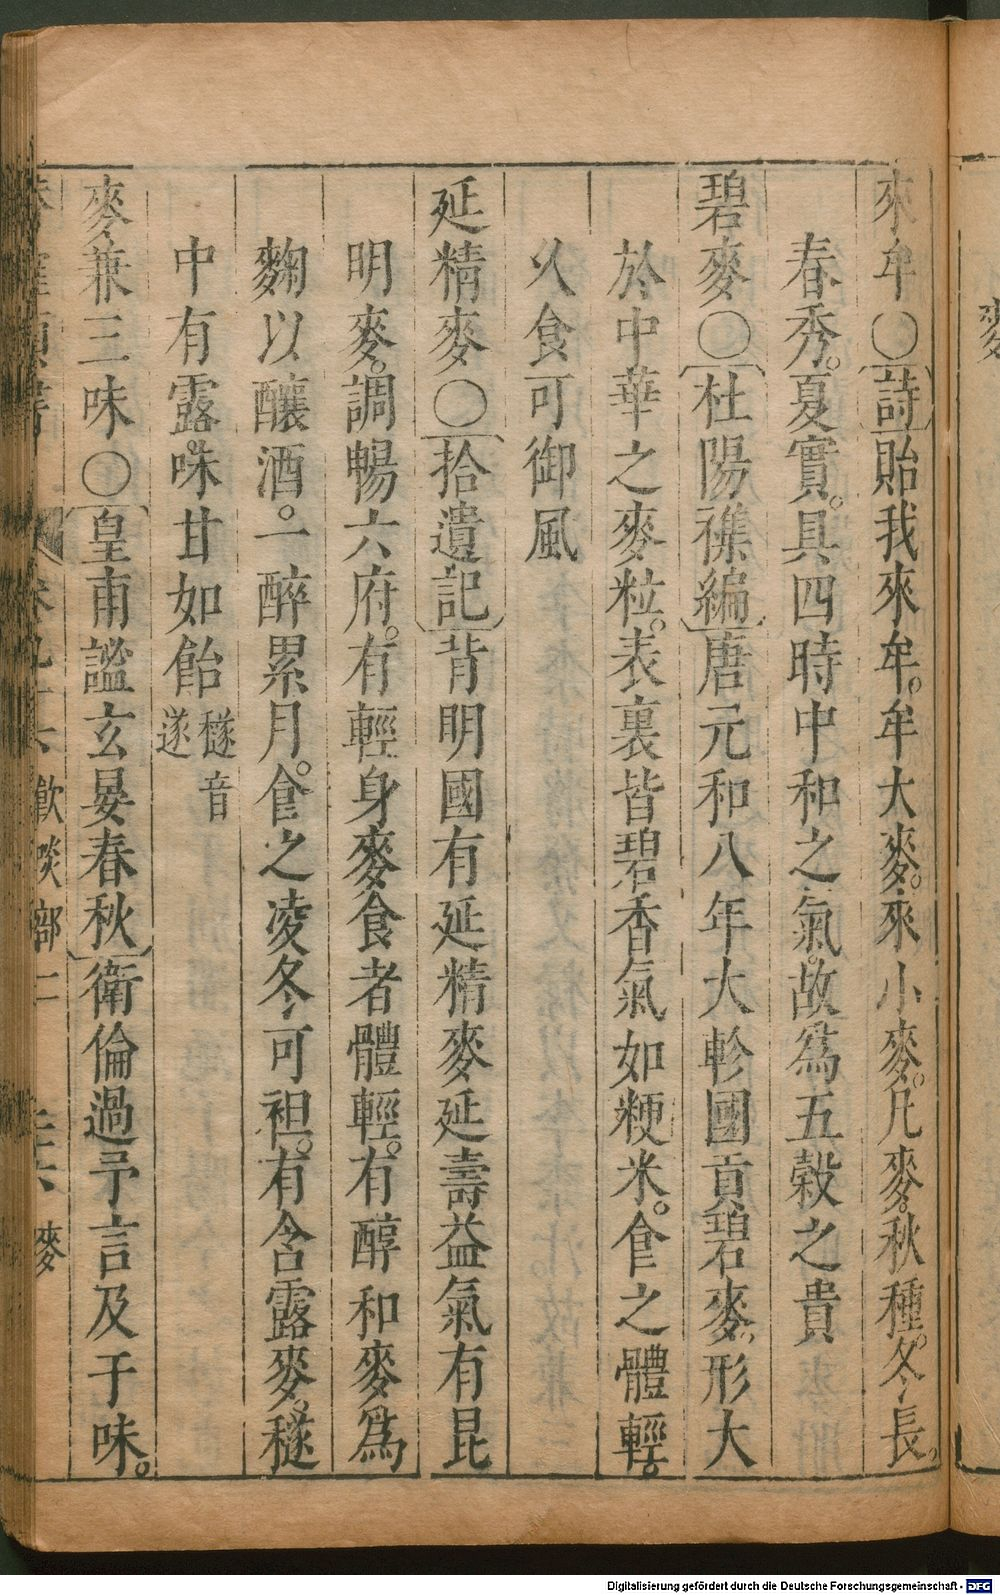 來牟〇詩貽我來牟。牟大麥。來小麥。凡麥。秋種。冬長。
春秀。夏實。具四時中和之氣。故爲五穀之貴
碧麥〇杜陽襍編唐元和八年大軫國貢碧麥。形大
於中華之麥粒。表裏皆碧香氣如粳米。食之體輕。
乆食可御風
延精麥〇拾遺記背明國有延精麥延壽益氣有昆
明麥。調暢六府。有輕身麥食者體輕。有醇和麥爲
麴以釀酒。一醉累月。食之凌冬可袒。有含露麥。穟
中有露。味甘如飴穟音
遂
麥兼三味〇皇甫謐玄晏春秋衛倫過予言及于味。
卷 飲啖部二 麥
麥
Digitalisierung gefördert durch die Deutsche Forschungsgemeinschaft - DFG